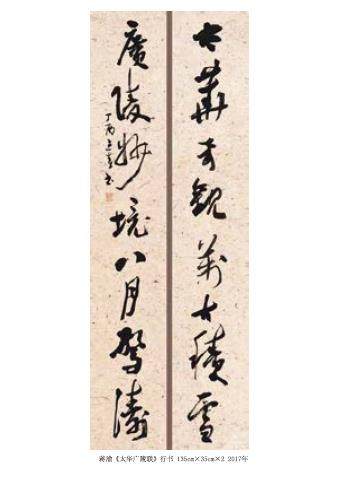 太華奇觀萬古積雪
廣陵妙境八月驚濤
丁酉
《太华广陵联》行书 135cm×35cm×2 2017年